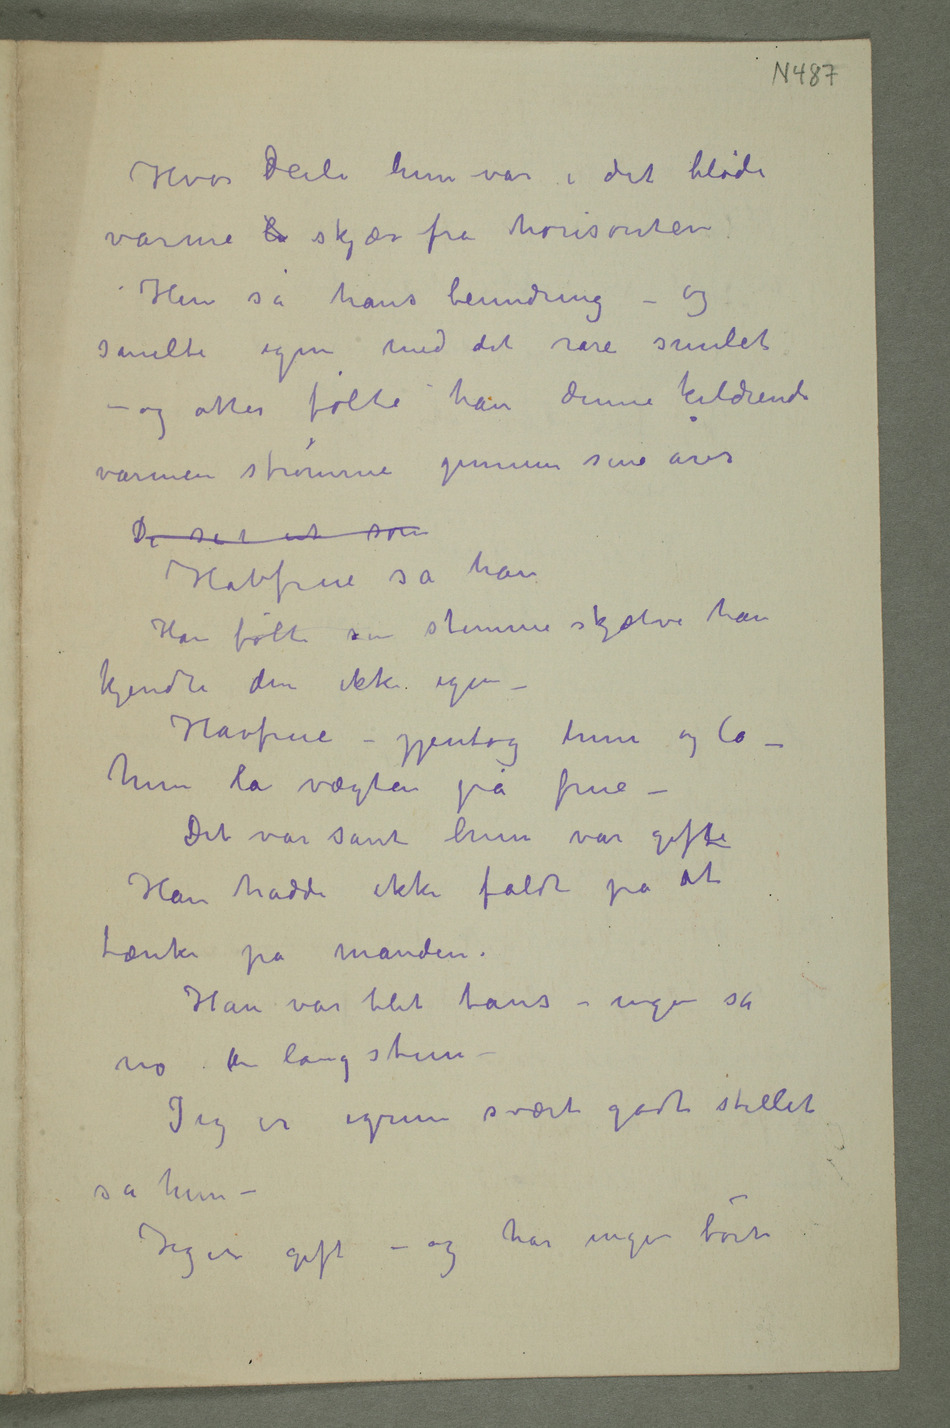 N487
Hvor deili hun var i det bløde
varme skjær fra horisonten
Hun så hans beundring – og
smilte igjen med det rare smilet
– og atter følte han denne kildrende
varmen strømme gjennem sine årer
De set ut som
Havfrue sa han
Han følte sin stemme skjælve han
kjendte den ikke igjen –
Havfrue – gjentog hun og lo –
hun la vægten på frue –
Det var sant hun var gift
Han hadde ikke faldt på at
tænke på manden.
Han var blit taus – ingen sa
no en lang stun –
Jeg er igrunn svært godt stillet
sa hun –
Jeg er gift – og har ingen børn